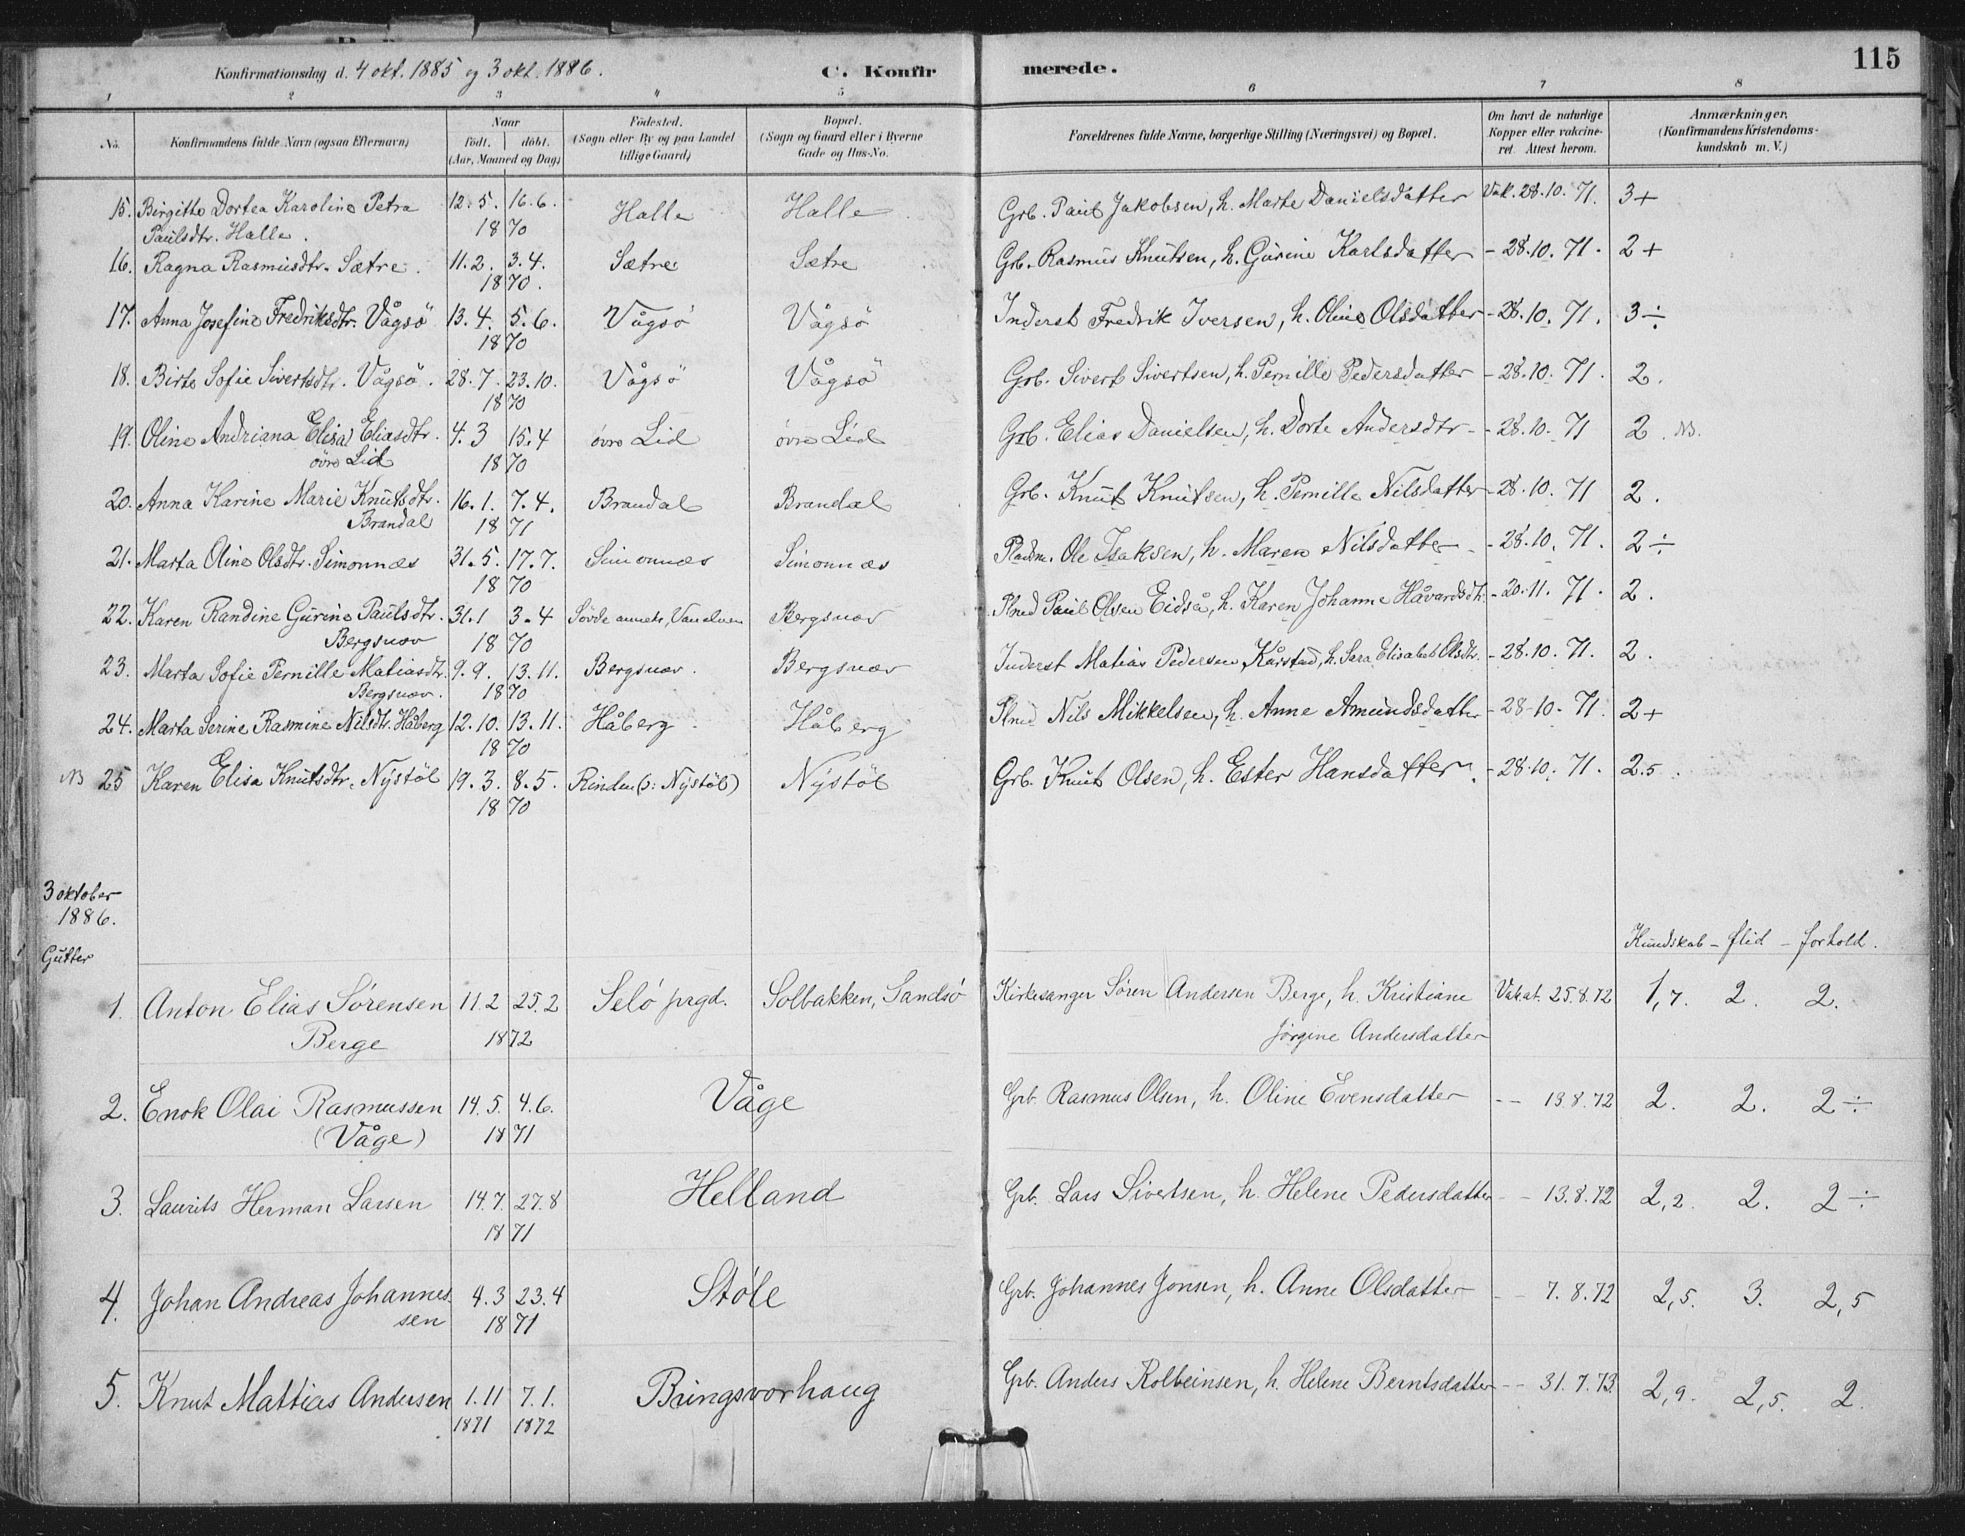 115
Konfirmationsdag d. 4 okt. 1885 og 3 okt. 1886. C. Konfirmerede.
1 2 3 4 5 6 7 8
No. Konfirmandens fulde Navn (ogsaa Efternavn) Naar født. døbt. (Aar, Maaned og Dag) Födested. (Sogn eller By og paa Landet tillige Gaard) Bopæl. (Sogn og Gaard eller i Byerne Gade og Hus-No. Forældrenes fulde Navne, borgerlige Stilling (Næringsvei) og Bopæl. Om havt de naturlige Kopper eller vakcineret. Attest herom. Anmærkninger. (Konfirmandens Kristendomskundskab m. V.)
15. Birgitte Dortea Karoline Petra 12.5. 16.6. Halle Halle Grb. Paul Jakobsen, h. Marte Danielsdatter Vak. 28.10. 71. 3+
Paulsdtr. Halle. 1870
16. Ragna Rasmusdtr. Sætre. 11.2. 3.4. Sætre Sætre Grb. Rasmus Knutsen, h. Gurine Karlsdatter - 28.10. 71. 2+
1870.
17. Anna Josefine Fredriksdtr. Vågsö 13.4. 5.6. Vågsö Vågsö Inderst Fredrik Iversen, h. Oline Olsdatter - 28.10. 71. 3÷
1870
18. Birte Sofie Sivertsdtr. Vågsö. 28.7. 23.10. Vågsö Vågsö Grb. Sivert Sivertsen, h. Pernille Pedersdatter - 28.10. 71. 2.
1870
19. Oline Andriana Elisa Eliasdtr. 4.3 15.4 övre Lid övre Lid Grb. Elias Danielsen, h. Dorte Andersdtr. - 28.10. 71 2. NB.
övre Lid 1870
20. Anna Karine Marie Knutsdtr. 16.1. 7.4. Brandal Brandal Grb. Knut Knutsen, h. Pernille Nilsdatter - 28.10. 71 2.
Brandal 1871
21. Marta Oline Olsdtr. Simonnæs 31.5. 17.7. Simonnæs Simonnæs Pladsm. Ole Isaksen, h. Maren Nilsdatter - 28.10. 71. 2÷
1870
22. Karen Randine Gurine Paulsdtr. 31.1 3.4 Søvde annets, Vanelven Bergsnov Plmd Paul Olsen Eidså, h. Karen Johanne Håvardsdtr. - 20.11. 71. 2.
Bergsnov 1870
23. Marta Sofie Pernille Matiasdtr. 9.9. 13.11. Bergsnov. Bergsnov Inderst Matias Pedersen Kårstad, h. Sara Elisabet Olsdtr. - 28.10. 71. 2.
Bergsnov. 1870
24. Marta Serine Rasmine Nilsdtr. Håberg 12.10. 13.11. Håberg Håberg Plmd Nils Mikkelsen, h. Anne Amundsdatter - 28.10. 71. 2+
1870
NB 25 Karen Elisa Knutsdtr. Nystöl 19.3. 8.5. Rinden (o: Nystöl) Nystöl Grb. Knut Olsen, h. Ester Hansdatter. - 28.10. 71. 2.5.
1870
3 oktober
1886.
Gutter
Kundskab - flid - forhold.
1. Anton Elias Sørensen 11.2 25.2 Selö prgd. Solbakken, Sandsö Kirkesanger Sören Andersen Berge, h. Kristiane Vakat. 25.8.72 1,7. 2. 2.
Berge 1872 Jörgine Andersdatter
2. Enok Olai Rasmussen 14.5. 4.6. Våge Grb. Rasmus Olsen, h. Oline Evensdatter -- 13.8.72 2. 2. 2÷
(Våge) 1871
3. Laurits Herman Larsen 14.7. 27.8 Helland Grb. Lars Sivertsen, h. Helene Pedersdatter -- 13.8.72 2,2. 2. 2÷
1871
4. Johan Andreas Johannes- 4.3 23.4 Støle Grb. Johannes Jonsen, h. Anne Olsdatter -- 7.8.72 2,5. 3. 2,5
sen 1871
5. Knut Mattias Andersen 1.11 7.1. Bringsvorhaug Grb. Anders Kolbeinsen, h. Helene Berntsdatter -- 31.7.73 2,9. 2,5. 2.
1871 1872